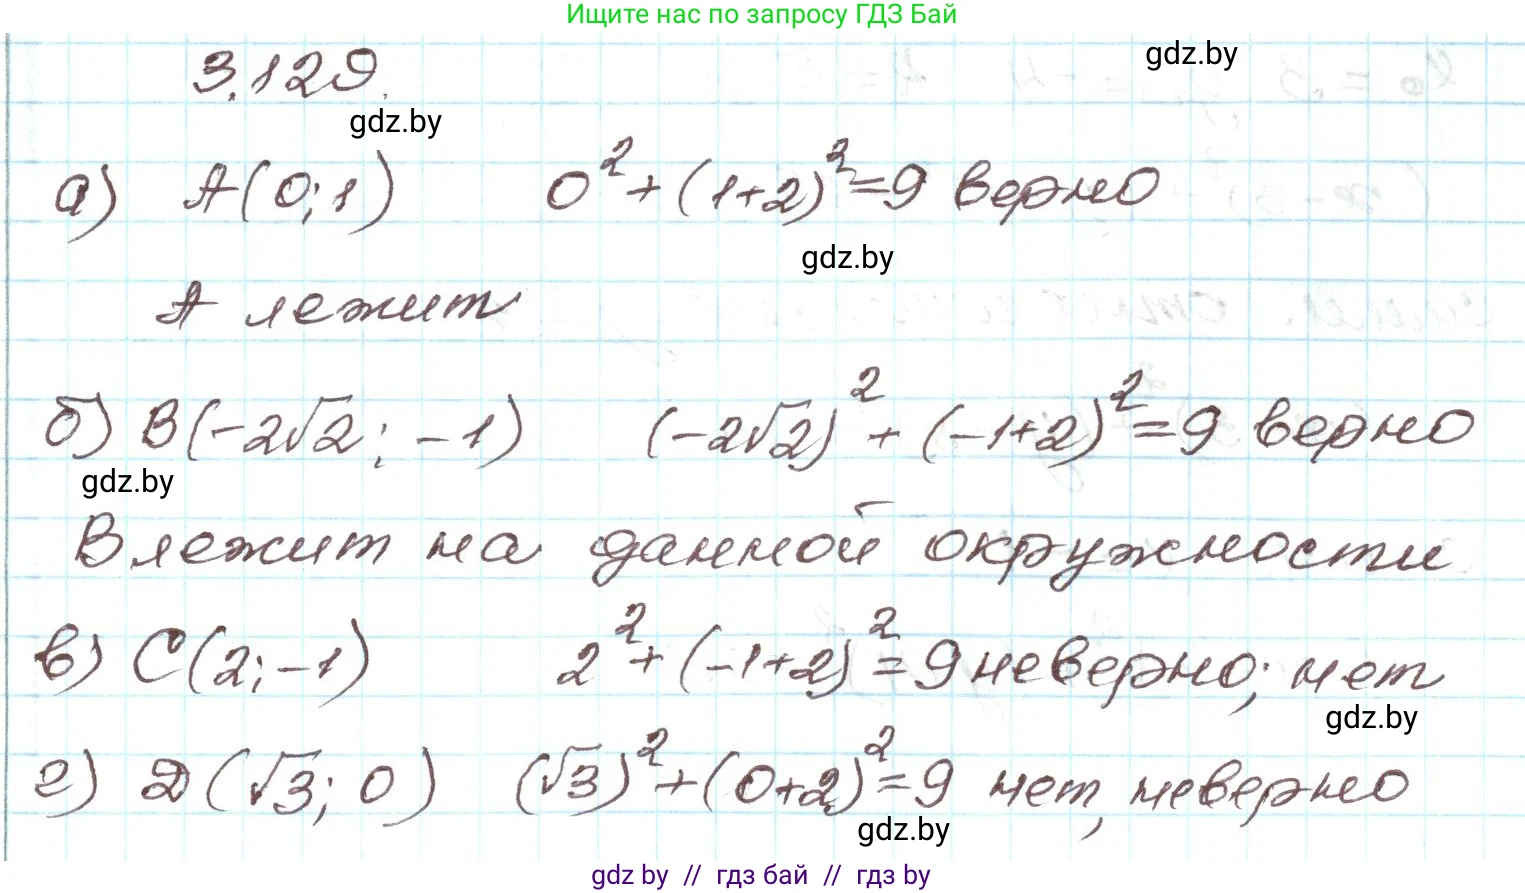 Ищите нас по запросу ГДЗ Бай
gdz.by
3.129.
gdz.by
а) A(0;1) 0²+(1+2)²=9 верно
gdz.by
A лежит
б) B(-2√2; -1) (-2√2)²+(-1+2)²=9 верно
gdz.by
B лежит на данной окружности
в) C(2;-1) 2²+(-1+2)²=9 неверно; нет
gdz.by
г) D(√3; 0) (√3)²+(0+2)²=9 нет, неверно
gdz.by
gdz by // гдз бай // гдз by